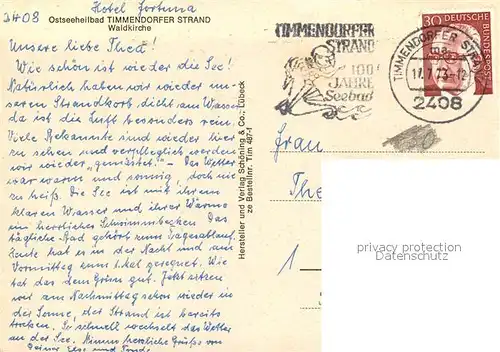 Hotel Fortuna
2408
Ostseeheilbad TIMMENDORFER STRAND
Waldkirche
Unsere liebe Thea!
Wie schön ist wieder die See!
Natürlich haben wir wieder un-
seren Strandkorb dicht am Wasser
da ist die Luft besonders rein.
Viele Bekannte sind wieder hier
zu sehen und verpfleglich werden
wir wieder „gemästet“. – Das Wetter
war warm und sonnig, doch nie
zu heiß. Die See ist mit ihrem
klaren Wasser und ihrer Wärme
ein herrliches Schwimmbecken. Das
tägliche Bad gehört zum Tagesablauf.
Heute hat es in der Nacht und am
Vormittag zum 1. Mal geregnet. Wie
tat das dem Grün gut. Jetzt sitzen
wir am Nachmittag schon wieder in
der Sonne, der Strand ist bereits
trocken. So schnell wechselt das Wetter
an der See. Nimm herzliche Grüße von
Deiner Else und
Hersteller und Verlag Schöning & Co., Lübeck
ze Bestellnr. Tim 487-1
TIMMENDORFER
STRAND
100
JAHRE
Seebad
30 DEUTSCHE
BUNDESPOST
TIMMENDORFER STRAND
17.7.73-12
2408
Frau
The
1
privacy protection
watermark